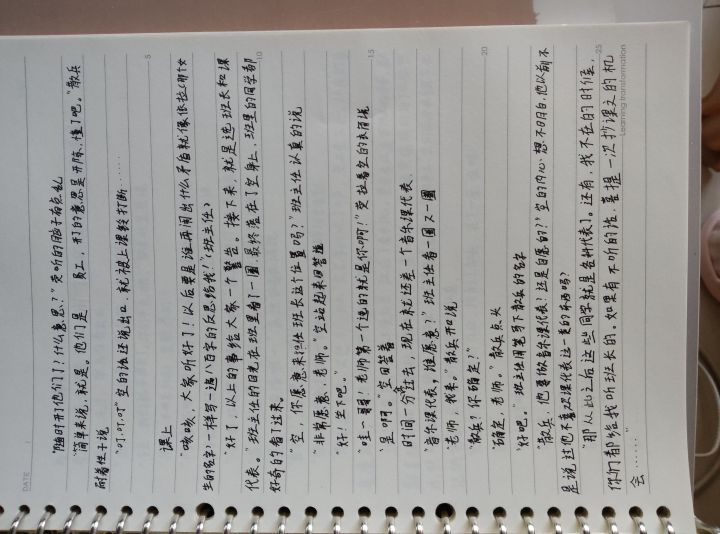 DATE
"随时开他们了？什么意思？"荧听的脑子有点乱
"简单来说，就是。他们是 员工，开的意思是开除，懂了吧。"散兵
耐着性子说
"叮，叮，叮"空的话还说出口，就被上课铃打断……
5
课上
"咳咳，大家听好了！以后要是谁再闹出什么矛盾就像 (那女
生的名字)一样写一遍八百字的反思给我！"(班主任)
"好了，以上的事给大家一个警告。接下来，就是选班长和课
代表。"班主任的目光在班里看了一圈最终落在了空身上，班里的同学都
10
好奇的看了过来。
"空，你愿意来担任班长这个位置吗？"班主任认真的说
"非常愿意，老师。"空站起来回答道
"好！坐下吧。"
"哇～哥哥！老师第一个选的就是你啊！"荧拉着空的衣角说
15
"是啊。"空回答着
时间一分过去，现在就还差一个音乐课代表。
"音乐课代表，谁愿意？"班主任看一圈又一圈
"老师，我来。"散兵开口说
"散兵？你确定？"
20
"确定，老师。"散兵点头
"好吧。"班主任用笔写下散兵的名字
"散兵，他要做音乐课代表？还是自愿的？"空的内心想不明白，他以前不
是说过他不喜欢课代表这一类的东西吗？
"那从此之后这些同学就是各科代表了。还有，我不在的时候，
25
Learning transformation
你们都给我听班长的。如果有不听的话喜提一次抄课文的机
会……"